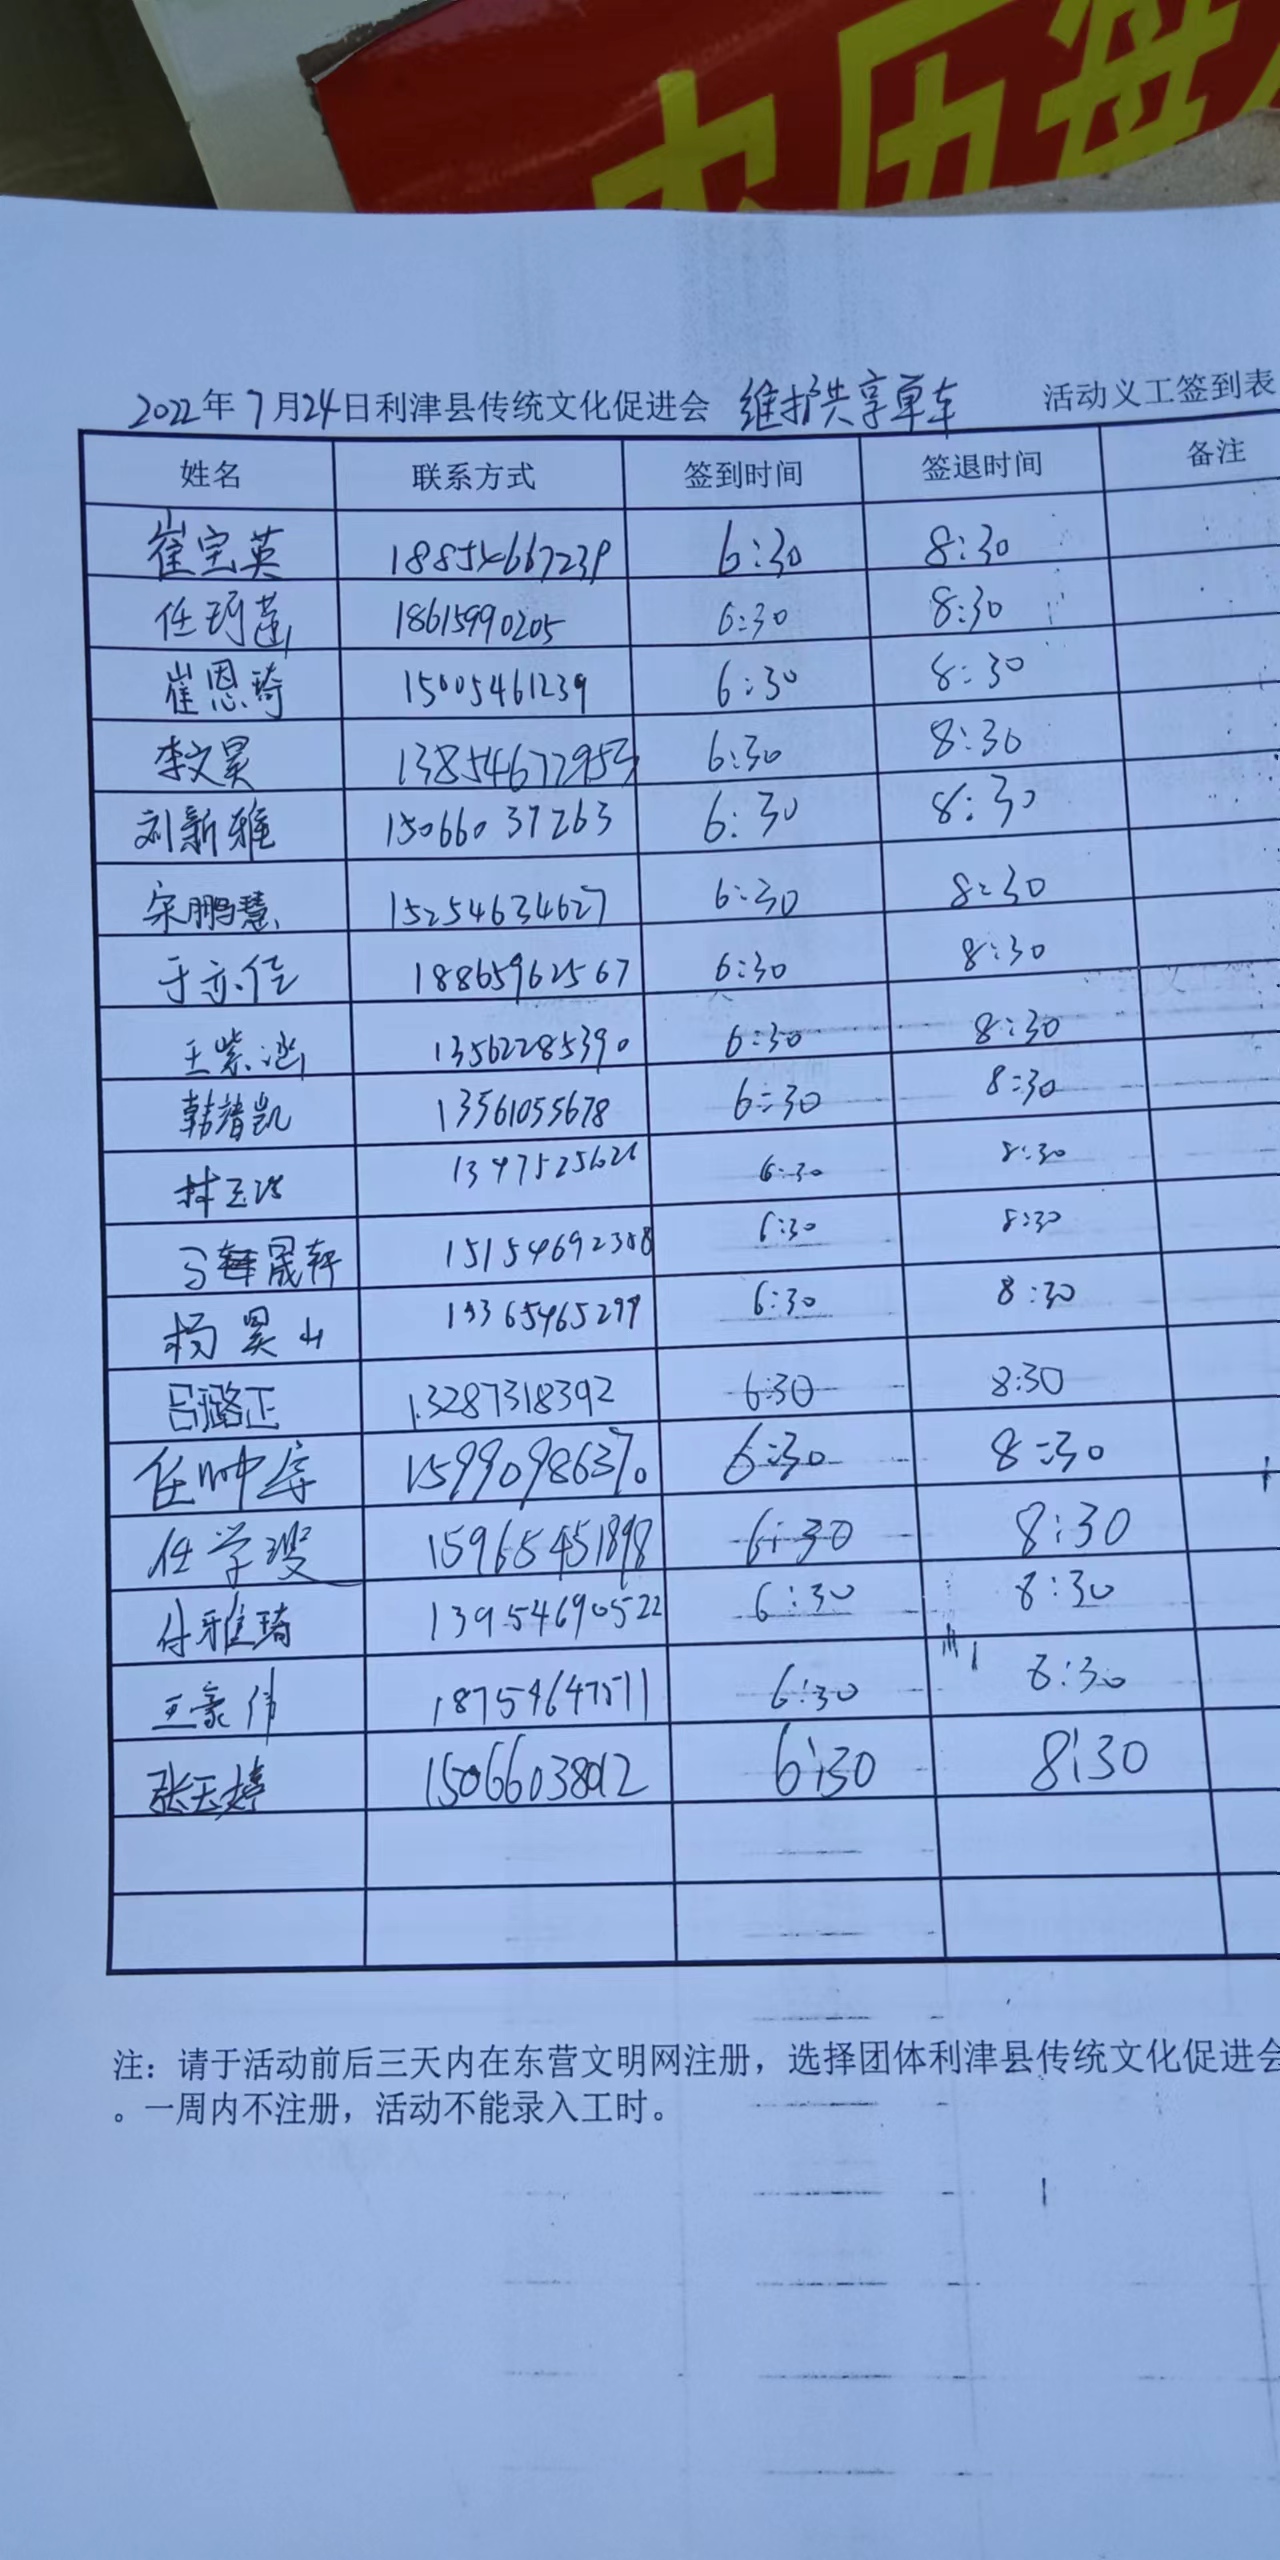 农历每
2022年7月24日利津县传统文化促进会 维护共享单车 活动义工签到表
姓名 联系方式 签到时间 签退时间 备注
崔宝英 18854667239 6:30 8:30
任珂莲 18615990205 6:30 8:30
崔恩琦 15005461239 6:30 8:30
李文昊 13854672953 6:30 8:30
刘新雅 15066037263 6:30 8:30
宋鹏慧 15254634627 6:30 8:30
于亦佳 18865962567 6:30 8:30
王紫涵 13562285390 6:30 8:30
韩靖凯 13561055678 6:30 8:30
林玉洁 6:30 8:30
马晟轩 15154692308 6:30 8:30
杨昊山 6:30 8:30
吕璐正 13287318392 6:30 8:30
任帅宇 15990986370 6:30 8:30
任学 15965451898 6:30 8:30
付雅琦 13954690522 6:30 8:30
王豪伟 18754647511 6:30 8:30
张玉婷 15066038012 6:30 8:30
注：请于活动前后三天内在东营文明网注册，选择团体利津县传统文化促进会
。一周内不注册，活动不能录入工时。